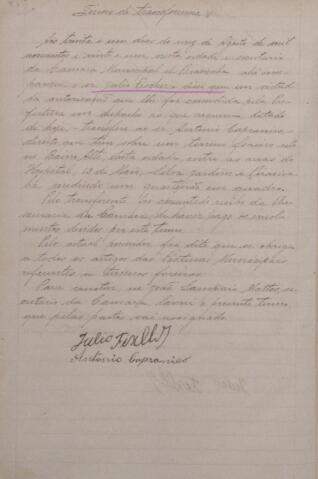 Termo de transferencia
Aos trinta e um dias do mez de Agosto de mil
novecentos e vinte e um, nesta cidade e secretaria
da Camara Municipal de Piracicaba ahi com-
pareceu o sr. Julio Fischer e disse que em virtude
da autorisação que lhe foi concedida pela Pre-
feitura em despacho ao que requereu datado
de hoje transfere ao sr. Antonio Capranico
direito que tem sobre um terreno foreiro sito
no Bairro Alto, desta cidade entre as ruas do
Hospital, 13 de Maio,
medindo um quarteirão em quadro.
Pelo transferente foi apresentado recibo da the-
souraria da Camara, de haver pago os emolu-
mentos devidos por este termo.
Pelo actual foreiro foi dito que se obriga
a todos os artigos das Posturas Municipaes
referentes a terrenos foreiros.
Para constar, eu João Sampaio Mattos, se-
cretario da Camara lavrei o presente termo,
que pelas partes vai assignado.
Julio
Antonio Capranico